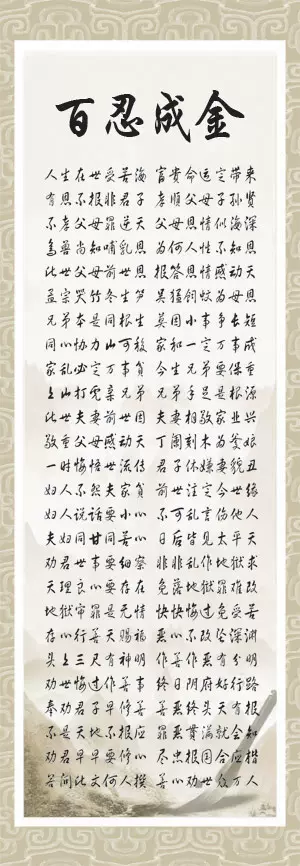 百忍成金
人生在世受苦海 富贵命运定带来
有恩不报非君子 孝顺父母子孙贤
不孝父母罪逆天 父母恩情似海深
鸟兽尚知哺乳恩 为何人性不知恩
此世父母前世恩 报答恩情感动天
孟宗哭竹冬生笋 吴猛饲蚊为母恩
兄弟本是同根生 莫因小事争长短
同心协力山可移 家和一定万事成
家乱必定万事贫 今生兄弟要保重
上山打虎亲兄弟 兄弟手足是根源
此世夫妻前世因 夫妻相敬家业兴
敬重父母感动天 丁阑刻木为爹娘
一时悔悟世流传 君子休嫌妻貌丑
妇人不然夫家贫 前世注定今世缘
妇人说话要小心 不可乱言伤他人
夫妇同甘同苦心 日后皆见太平天
劝君世事要细察 非非乱作地狱求
天理良心要存在 免落地狱罪难改
地狱审罪是无情 快快悔过免受苦
存心行善天赐福 恶心不改坠深渊
头上三尺有神明 作善作恶有分明
劝世悔过作善事 终日阴府好行路
奉劝君子早修善 善恶终头天有报
不是天地不报应 罪恶贯满就会知
劝君早早要修心 尽忠报国合应楷
若问此文何人撰 善心劝世众万人